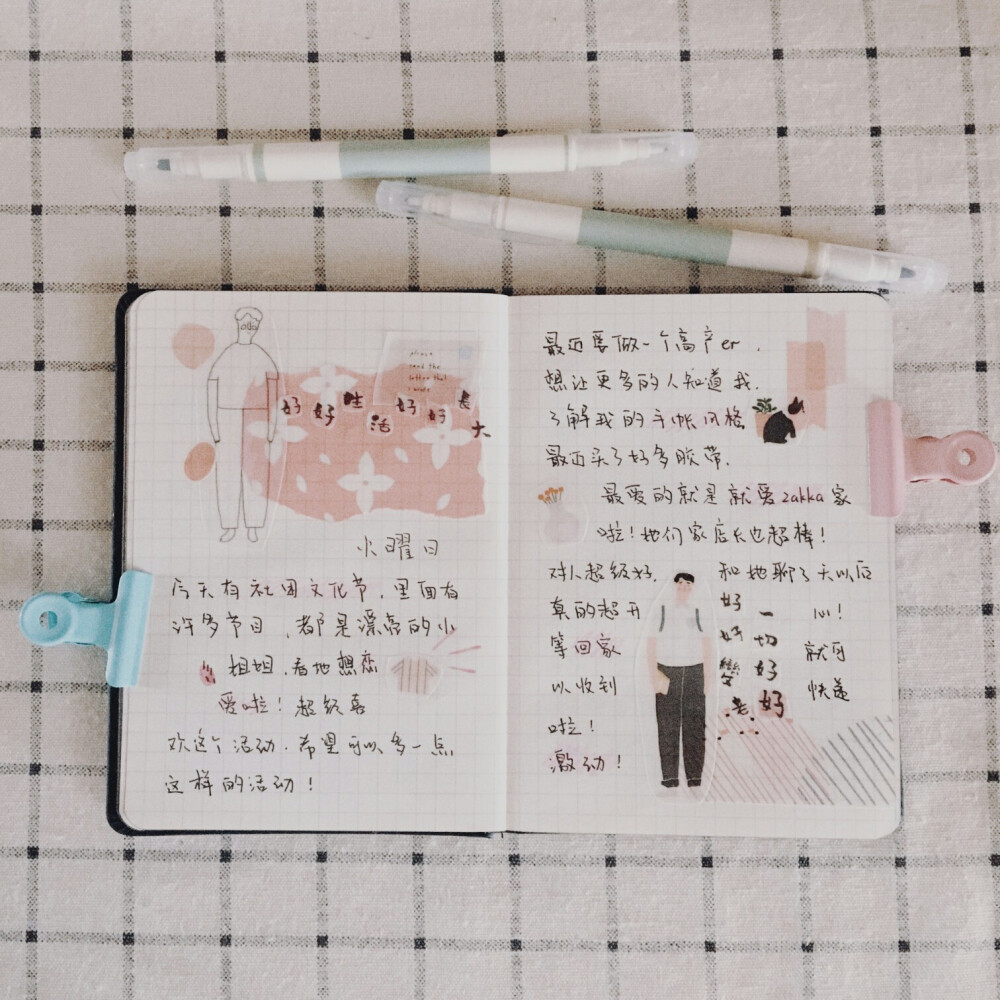 please
send the
letter that
I wrote
好好生活 好好长大
火曜日
今天有社团文化节，里面有
许多节目，都是漂亮的小
姐姐，看地想恋
爱啦！超级喜
欢这个活动．希望可以多一点
这样的活动！
最近要做一个高产er．
想让更多的人知道我．
了解我的手帐风格
最近买了好多胶带．
最爱的就是就爱zakka家
啦！她们家店长也超棒！
对人超级好，和她聊了天以后
真的超开心！
等回家就可
以收到快递
啦！
激动！
好好變老
一切好好
堆糖